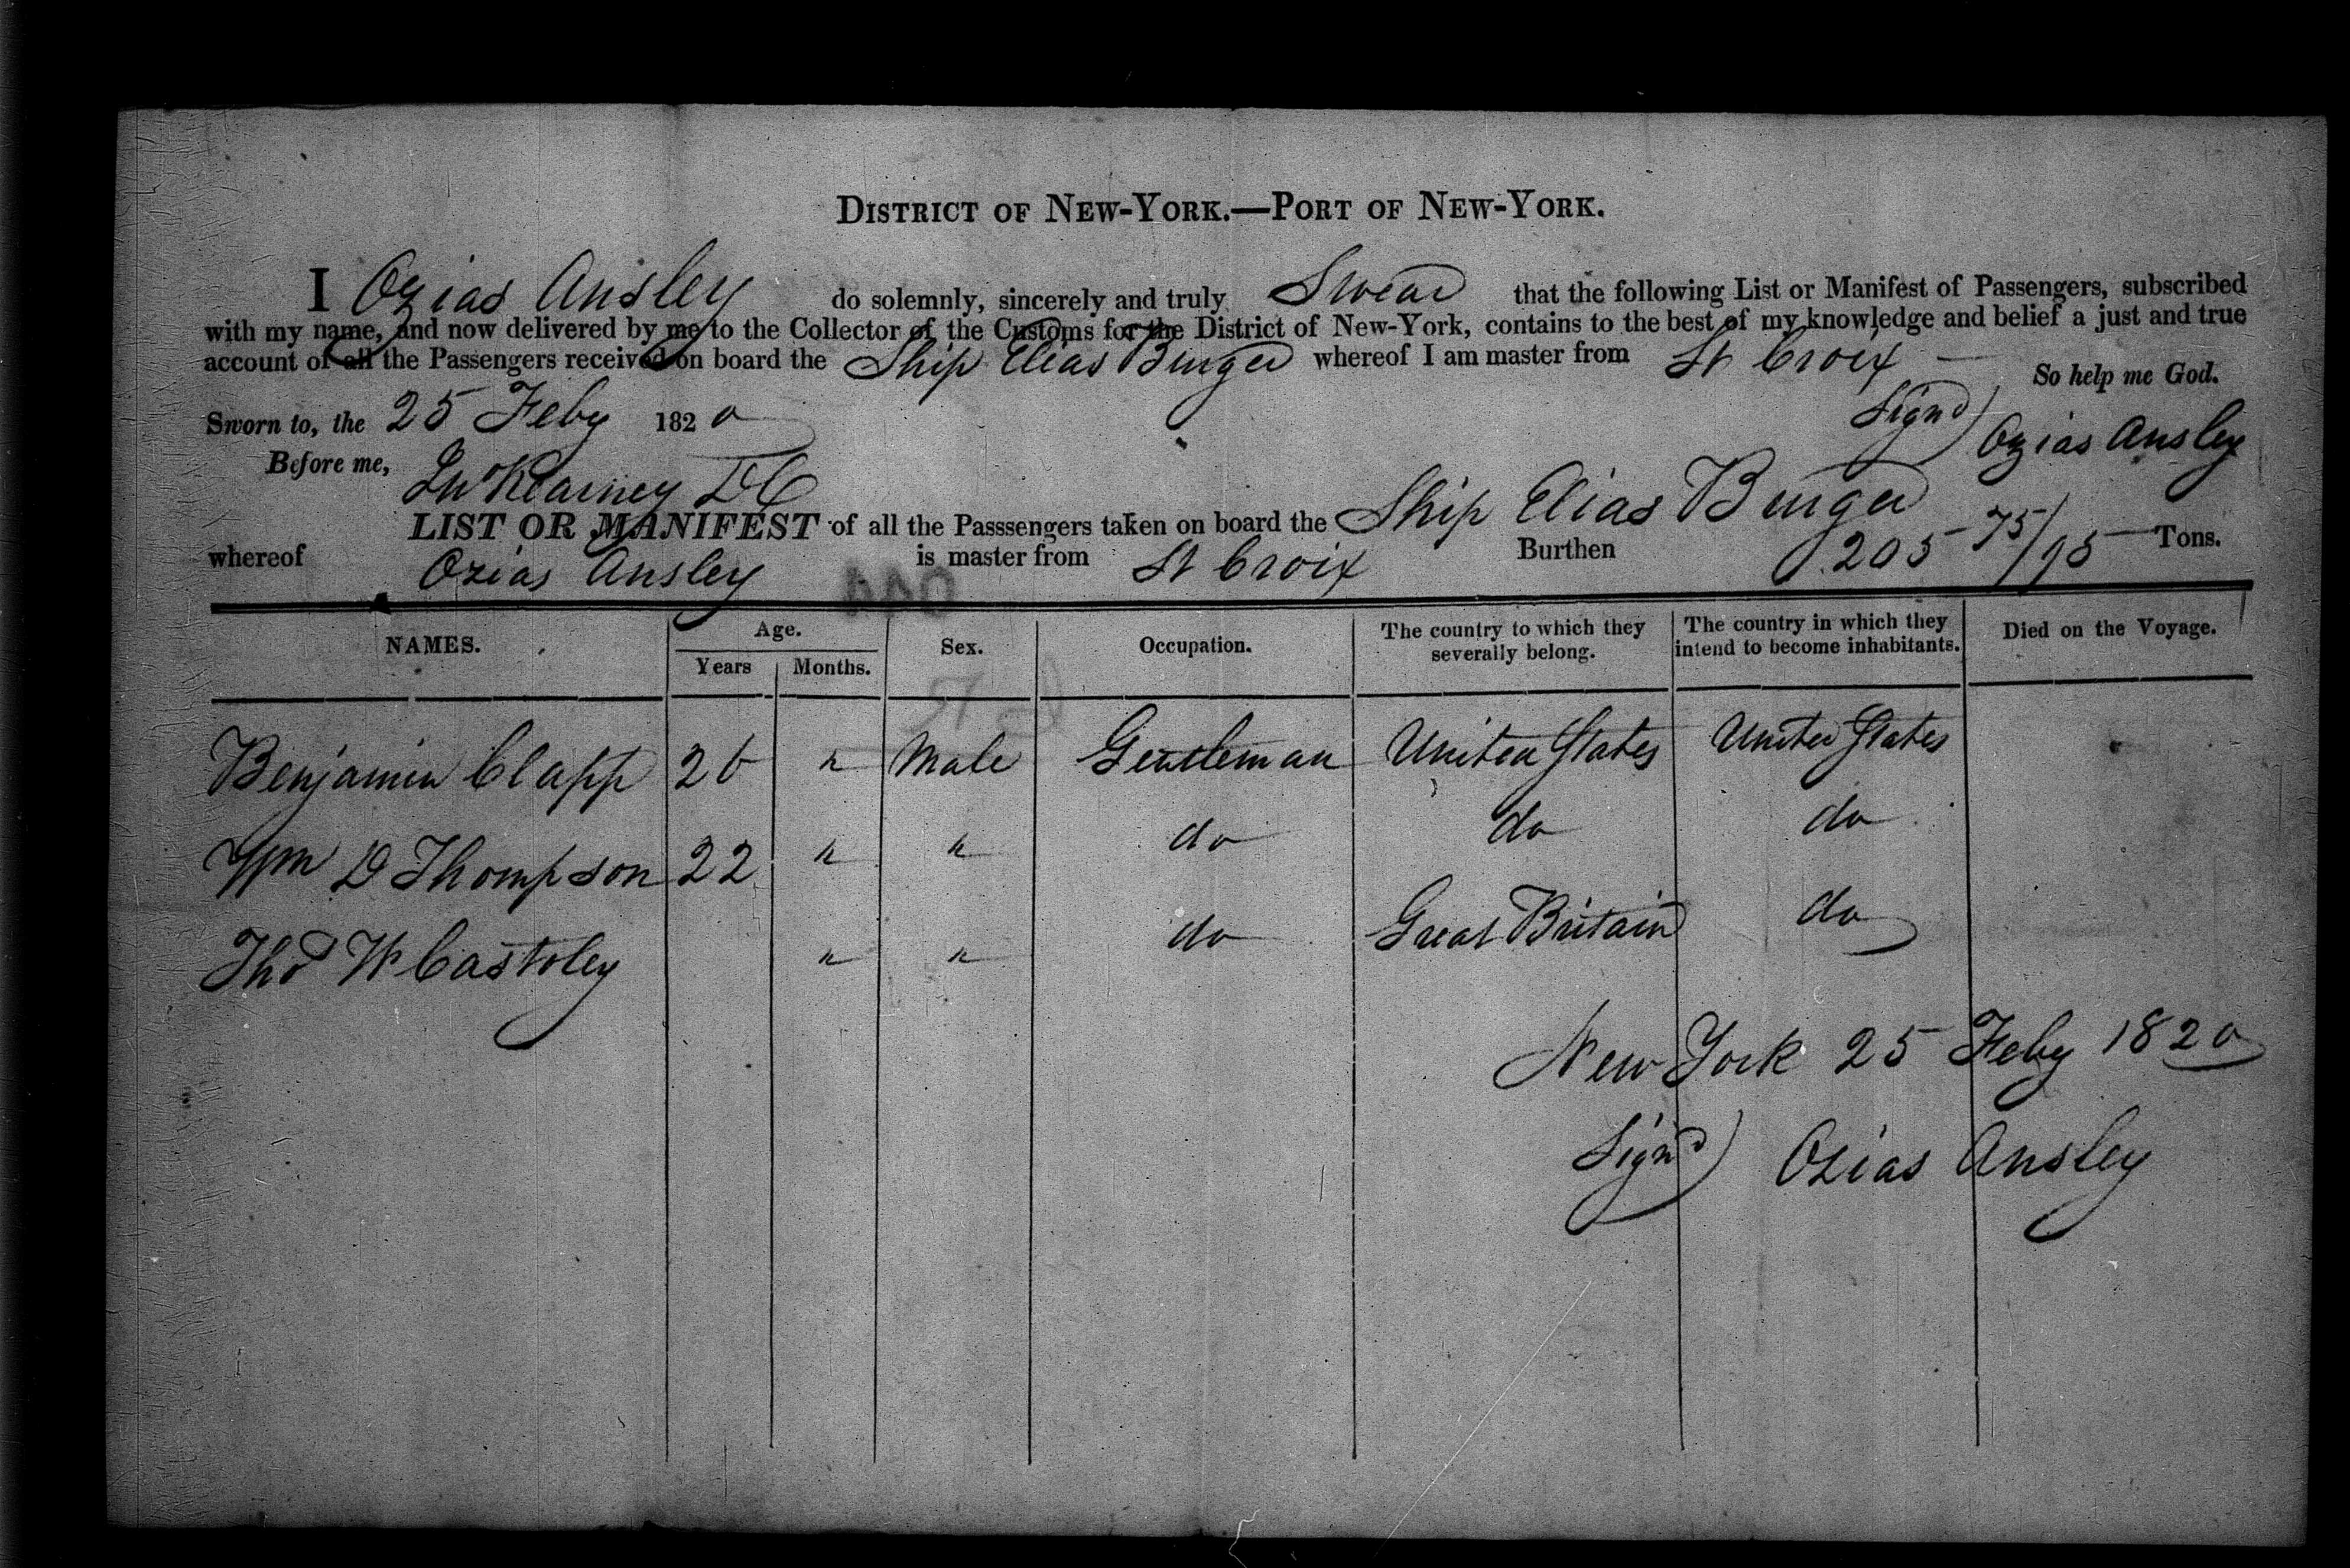 DISTRICT OF NEW-YORK.—PORT OF NEW-YORK.
I Ozias Ansley do solemnly, sincerely and truly Swear that the following List or Manifest of Passengers, subscribed
with my name, and now delivered by me to the Collector of the Customs for the District of New-York, contains to the best of my knowledge and belief a just and true
account of all the Passengers received on board the Ship Elias Burger whereof I am master from St Croix —
So help me God.
Sworn to, the 25 Feby 1820
Signd) Ozias Ansley
Before me, Kearney DC
LIST OR MANIFEST of all the Passsengers taken on board the Ship Elias Burger
whereof Ozias Ansley is master from St Croix Burthen 205 75/95 Tons.
NAMES. Age. Sex. Occupation. The country to which they severally belong. The country in which they intend to become inhabitants. Died on the Voyage.
Years Months.
Benjamin Clapp 26 " Male Gentleman United States United States
Wm D Thompson 22 " " do do do
Thos W Castoley " " do Great Britain do
New York 25 Feby 1820
Signd) Ozias Ansley